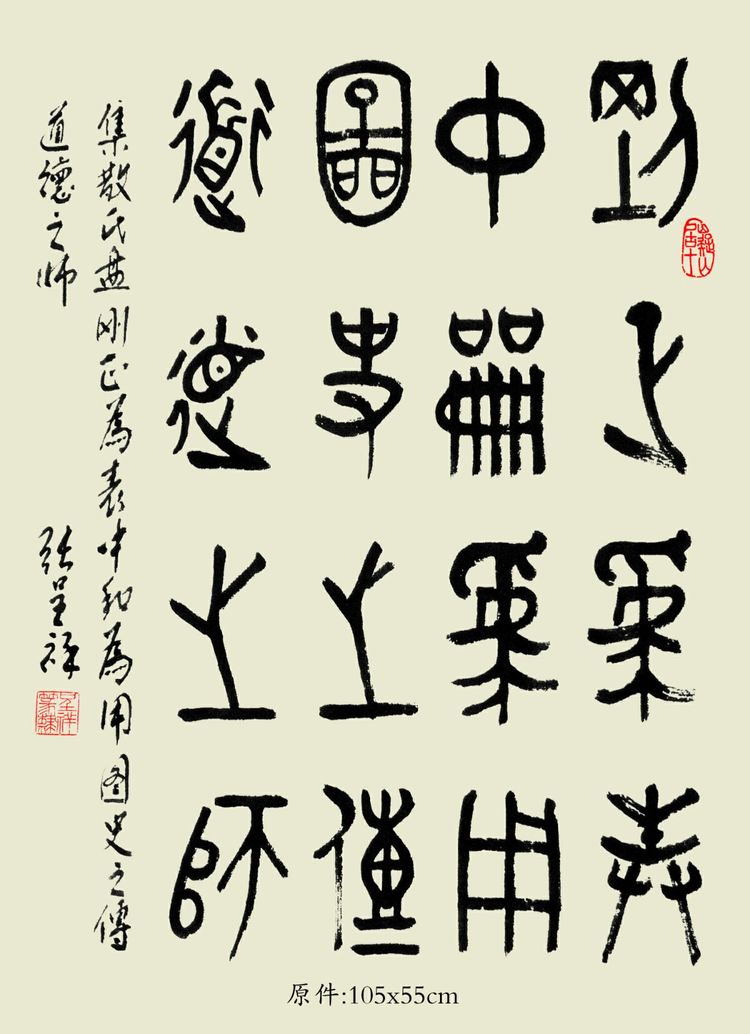 刚正為表
中和為用
图史之傳
道德之师
集散氏盘刚正為表中和為用图史之傳
道德之师
张呈祥
原件:105x55cm